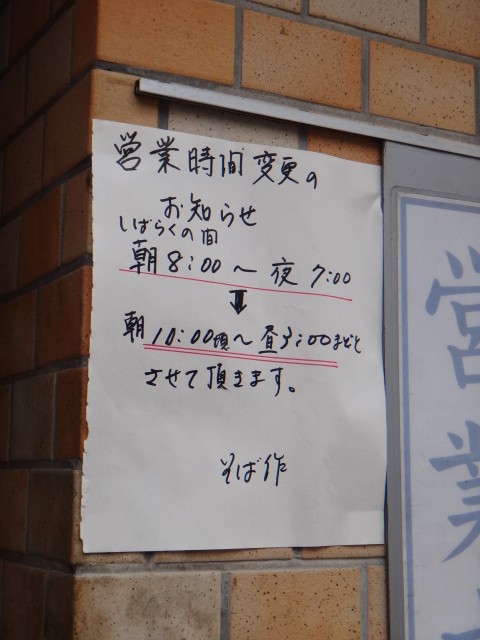 営業時間変更の
お知らせ
しばらくの間
朝8:00〜夜7:00
↓
朝10:00頃〜昼3:00までと
させて頂きます。
そば作
営業